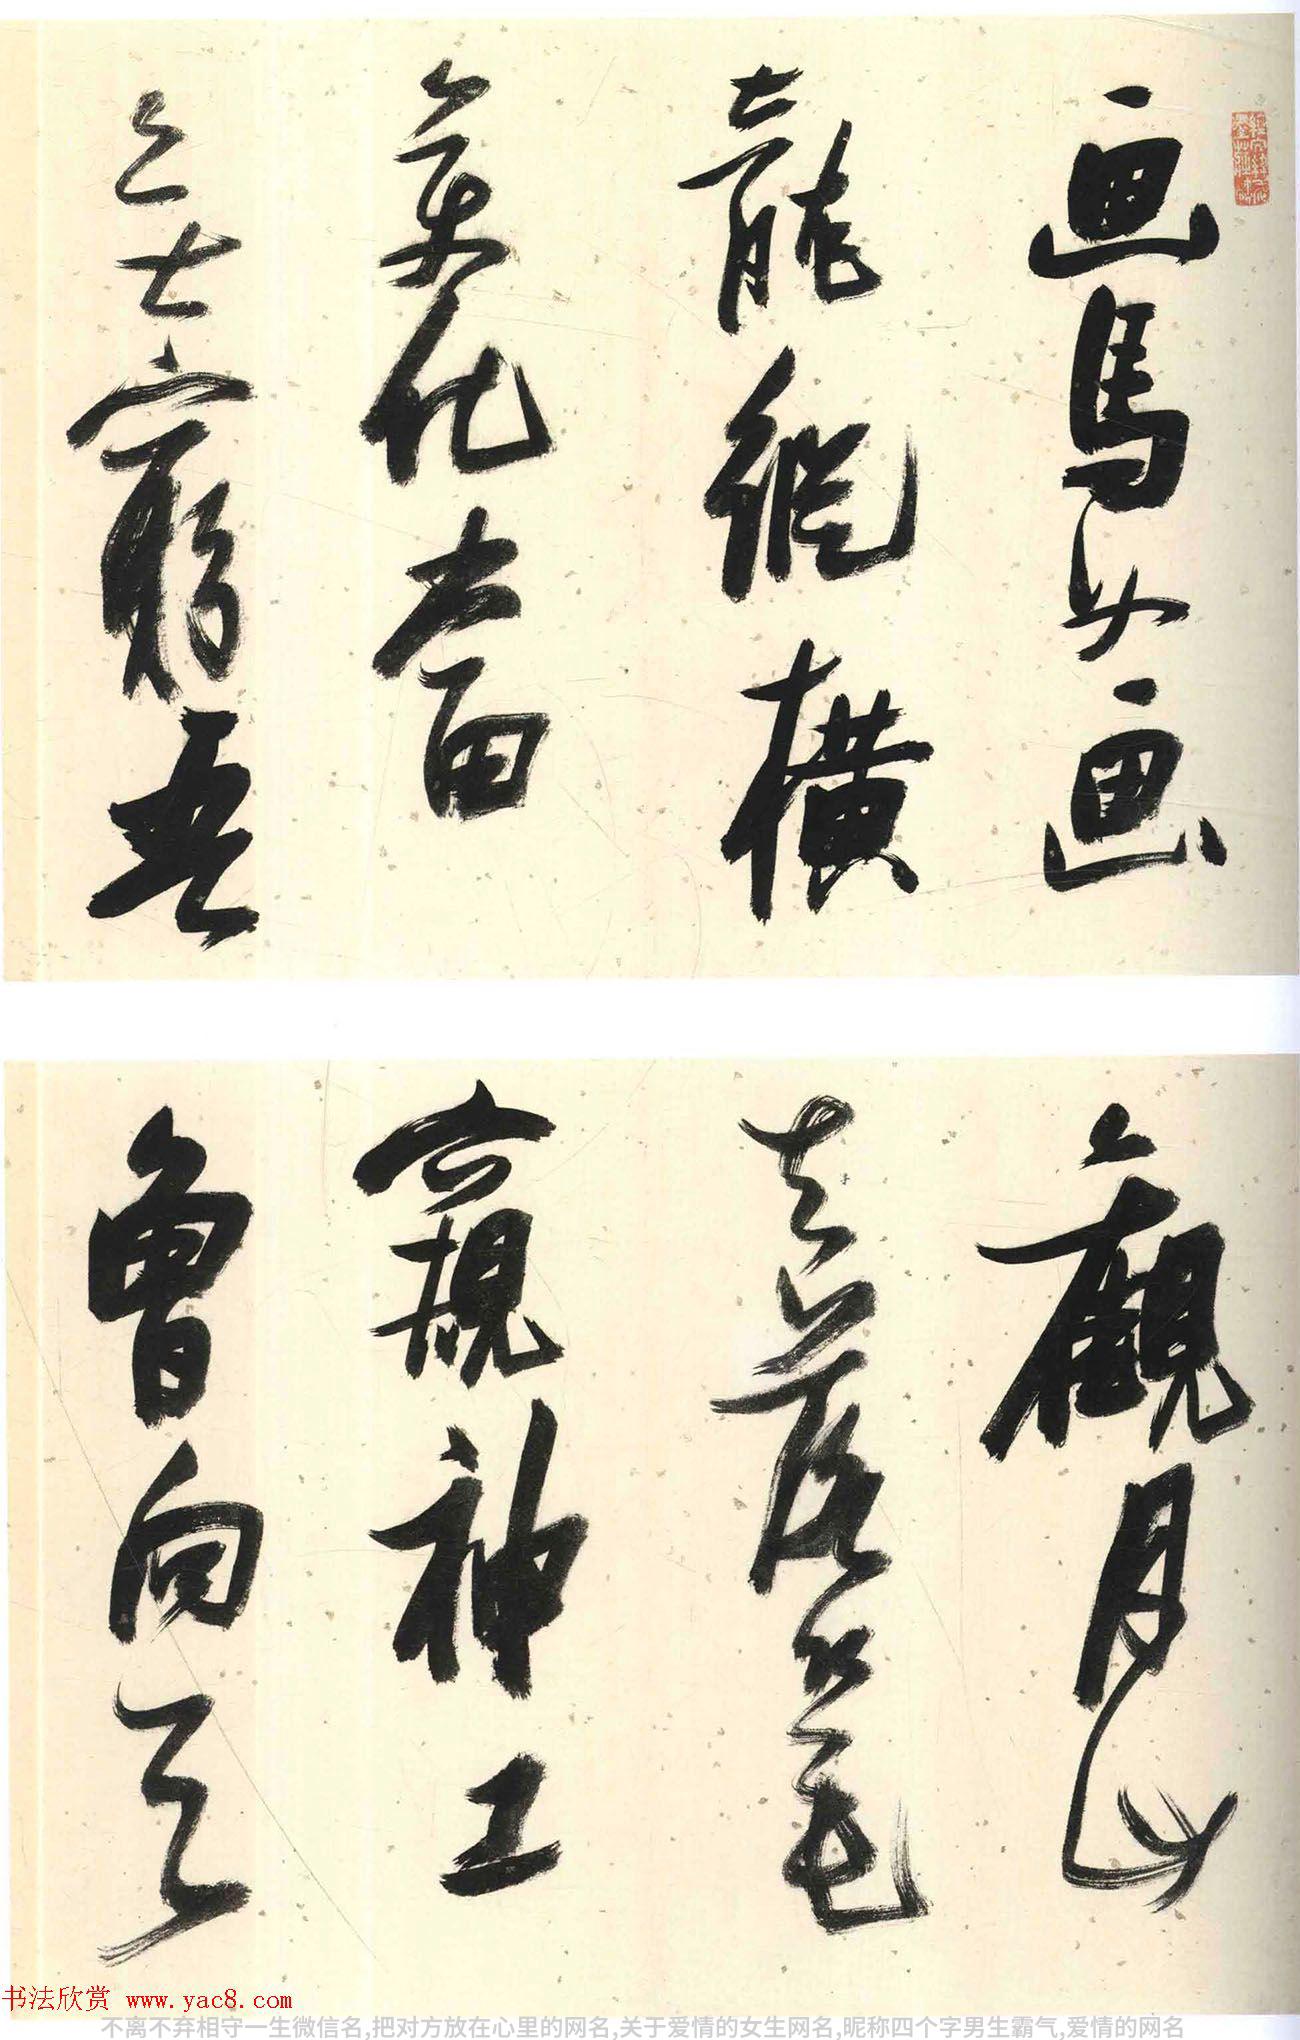 画馬如画
龍縱橫
變化當
無窮吾
觀月山
落筆
窺神工
曾向天
书法欣赏 www.yac8.com
不离不弃相守一生微信名,把对方放在心里的网名,关于爱情的女生网名,昵称四个字男生霸气,爱情的网名